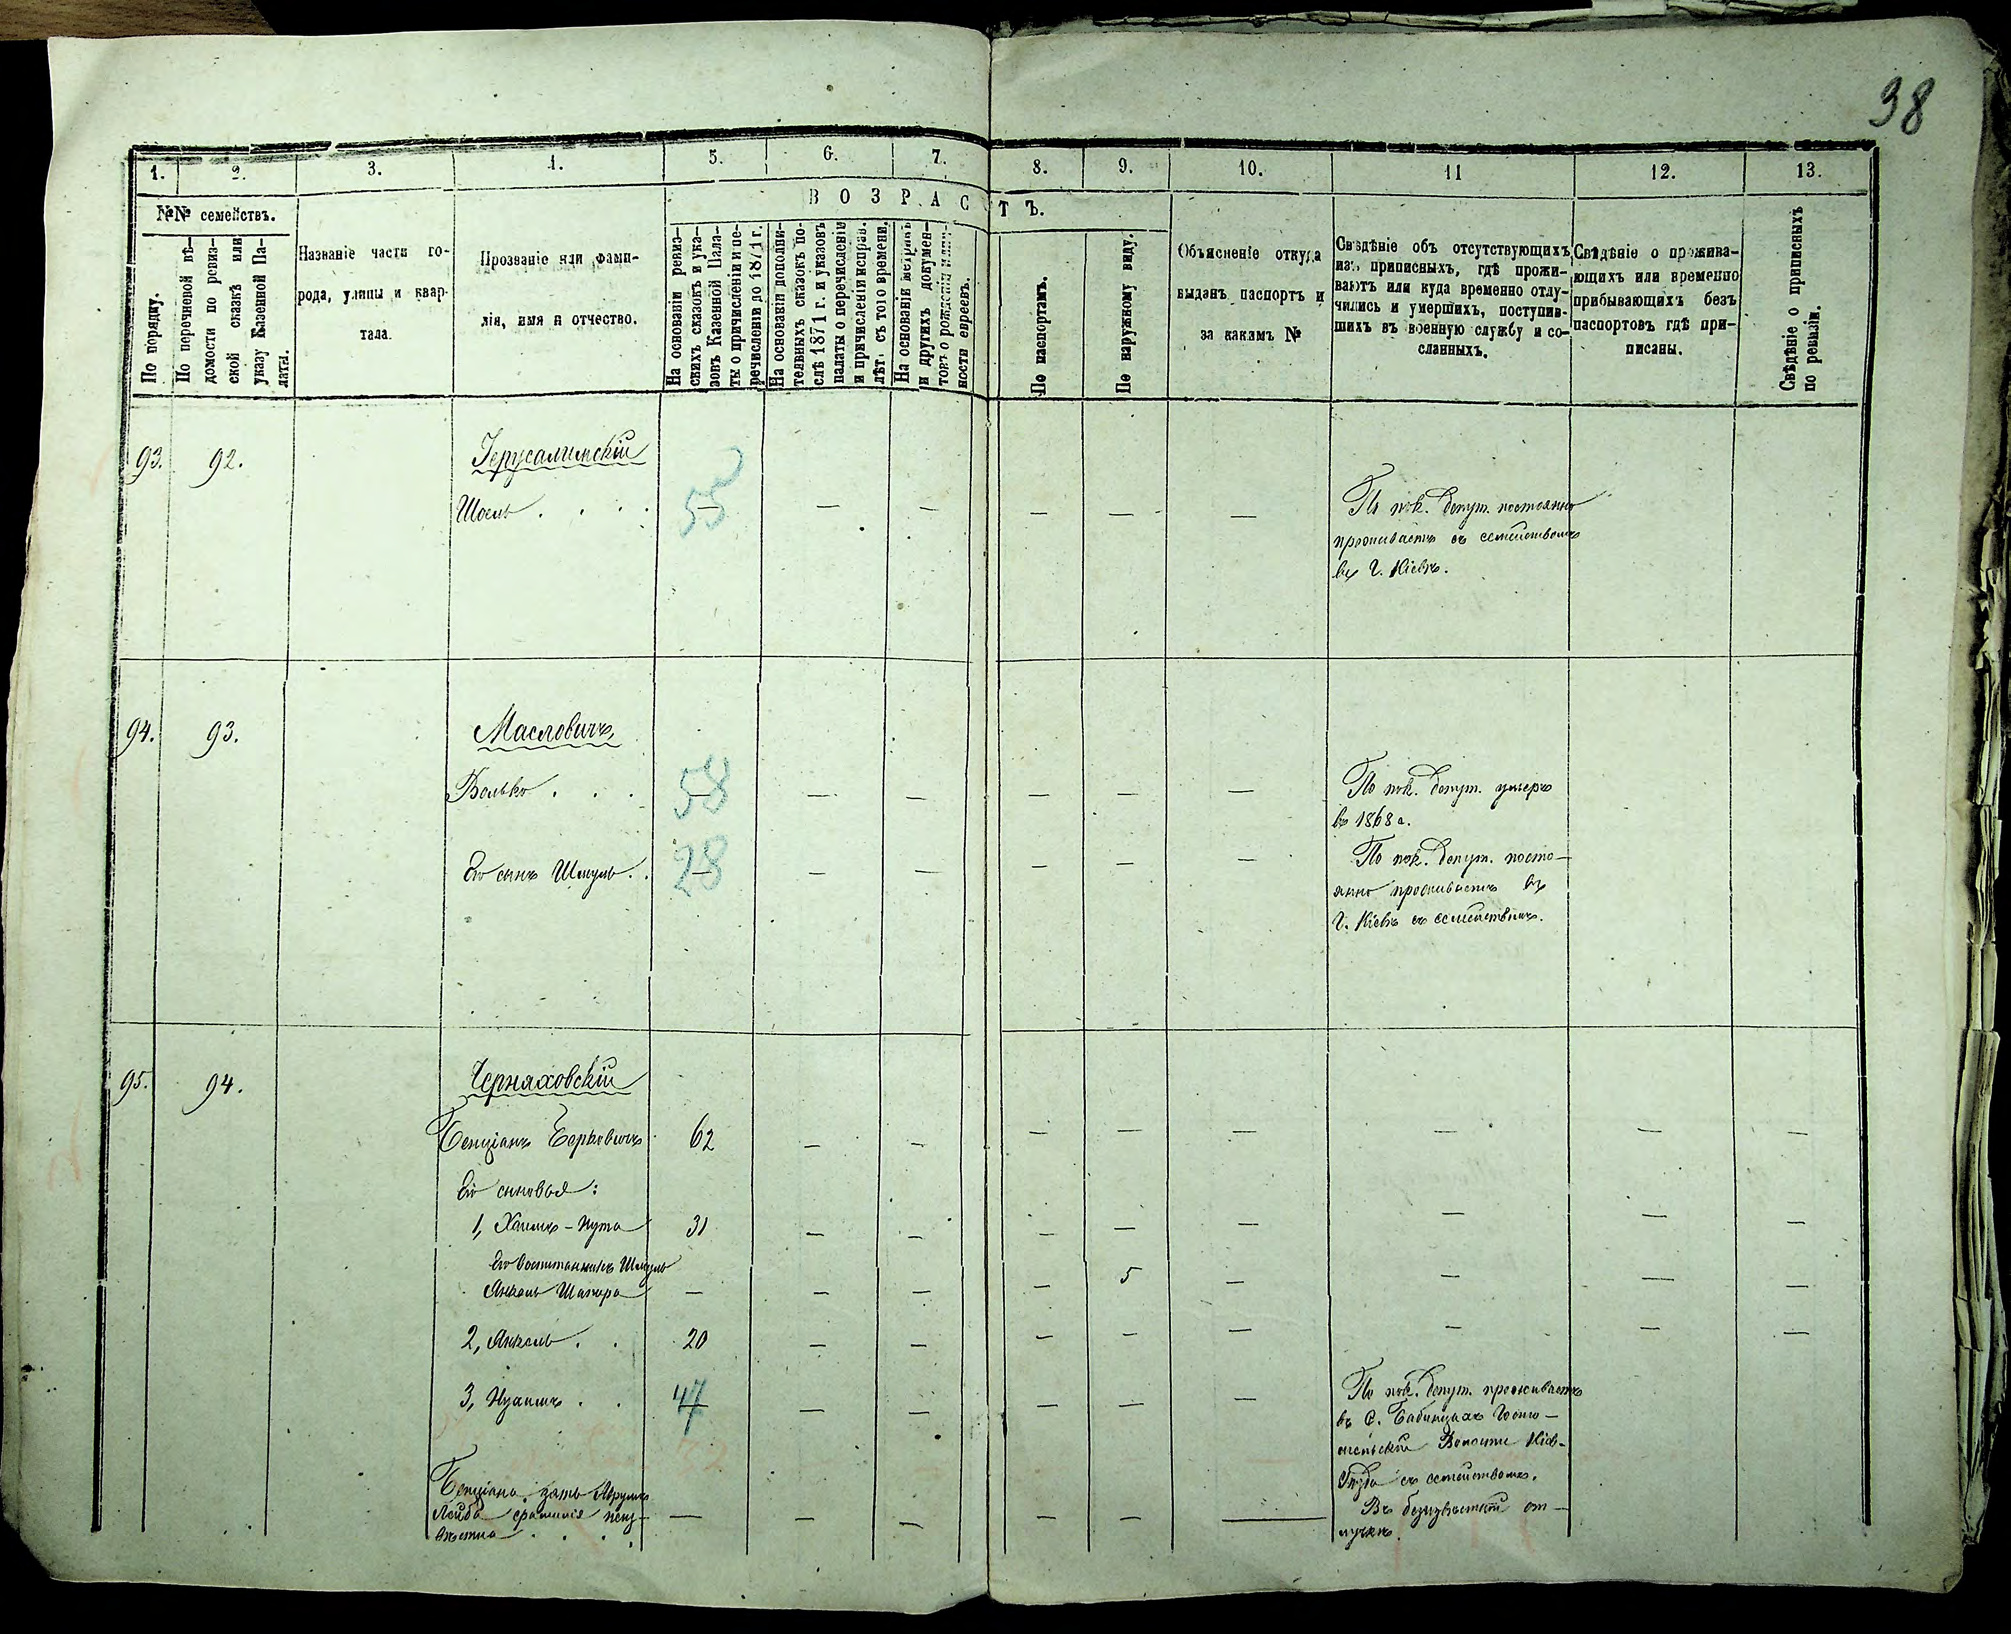 38
1. 2. 3. 4. 5. 6. 7. 8. 9. 10. 11 12. 13.
№№ семействъ.
ВОЗРАСТЪ.
По порядку.
По перечневой вѣ-
домости по ревиз-
ской сказкѣ или
указу Казенной Па-
латы.
Названіе части го-
рода, улицы и квар-
тала.
Прозваніе или фами-
лія, имя и отчество.
На основаніи ревиз-
скихъ сказокъ и ука-
зовъ Казенной Пала-
ты о причисленіи и пе-
речисленіи до 1871 г.
На основаніи дополни-
тельныхъ сказокъ по-
слѣ 1871 г. и указовъ
палаты о перечисленіи
и причисленіи исправ.
лѣтъ съ того времени.
На основаніи метрикъ
и другихъ докумен-
товъ о рожденіи
ности евреевъ.
По паспортамъ.
По наружному виду.
Объясненіе откуда
выданъ паспортъ и
за какимъ №
Свѣдѣніе объ отсутствующихъ
изъ приписныхъ, гдѣ прожи-
ваютъ или куда временно отлу-
чились и умершихъ, поступив-
шихъ въ военную службу и со-
сланныхъ.
Свѣдѣніе о прожива-
ющихъ или временно
прибывающихъ безъ
паспортовъ гдѣ при-
писаны.
Свѣдѣніе о приписныхъ
по ревизіи.
93. 92. Іерусалимскій
Шоель . . . . 55 — — — — — По пок. депут. постоянно
проживаетъ съ семействомъ
въ г. Кіевѣ.
94. 93. Масловичъ
Волько . . . 58 — — — — — По пок. депут. умеръ
въ 1868 г.
Его сынъ Шмуль . . 28 — — — — — По пок. депут. посто-
янно проживаетъ въ
г. Кіевѣ съ семействомъ.
95. 94. Черняховскій
Бенціанъ Берковичъ 62 — — — — — — — —
Его сыновья:
1, Хаимъ-Нута 31 — — — — — — — —
Его воспитанникъ Шмуль
Янкель Шапира — — — — 5 — — — —
2, Янкель . . 20 — — — — — — — —
3, Нухимъ . . 47 — — — — — По пок. депут. проживаетъ
въ с. Бабинцахъ Госто-
мельской Волости Кіев.
Уѣзда съ семействомъ.
Бенціана зять Аврумъ
Лейба фамилія неиз-
вѣстна . . . . — — — — — — Въ безизвѣстной от-
лучкѣ.